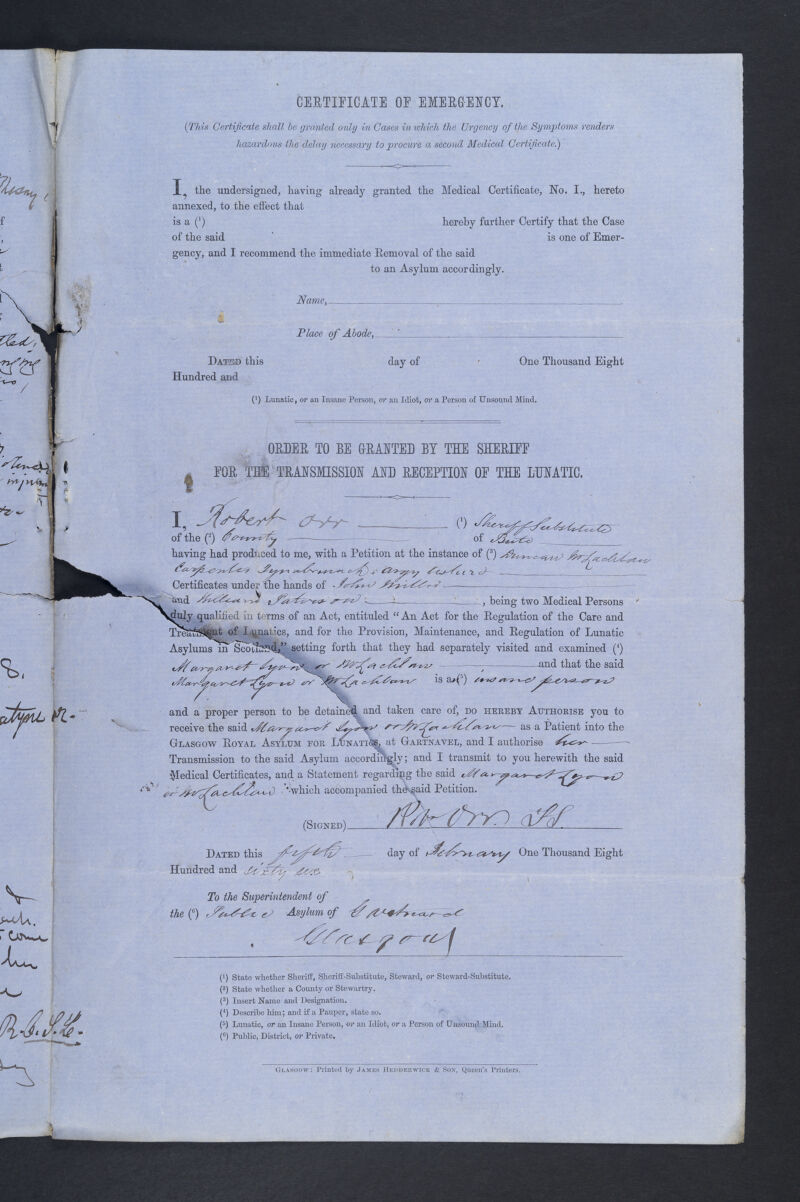 CERTIFICATE OF EMERGENCY.
(This Certificate shall be granted only in Cases in which the Urgency of the Symptoms renders
hazardous the delay necessary to procure a second Medical Certificate.)
I, the undersigned, having already granted the Medical Certificate, No. I., hereto
annexed, to the effect that
is a (¹) hereby further Certify that the Case
of the said is one of Emer-
gency, and I recommend the immediate Removal of the said
to an Asylum accordingly.
Name,
Place of Abode,
DATED this day of One Thousand Eight
Hundred and
(¹) Lunatic, or an Insane Person, or an Idiot, or a Person of Unsound Mind.
ORDER TO BE GRANTED BY THE SHERIFF
FOR THE TRANSMISSION AND RECEPTION OF THE LUNATIC.
I, Robert Orr (¹) Sheriff Substitute
of the (²) County of Bute
having had produced to me, with a Petition at the instance of (³) Duncan McLachlan
Carpenter
Certificates under the hands of John Miller
and William Paterson, being two Medical Persons
duly qualified in terms of an Act, entituled “An Act for the Regulation of the Care and
Treatment of Lunatics, and for the Provision, Maintenance, and Regulation of Lunatic
Asylums in Scotland,” setting forth that they had separately visited and examined (⁴)
Margaret Lyon or McLachlan and that the said
Margaret Lyon or McLachlan is a(⁵) insane person
and a proper person to be detained and taken care of, DO HEREBY AUTHORISE you to
receive the said Margaret Lyon or McLachlan as a Patient into the
GLASGOW ROYAL ASYLUM FOR LUNATICS, at GARTNAVEL, and I authorise her
Transmission to the said Asylum accordingly; and I transmit to you herewith the said
Medical Certificates, and a Statement regarding the said Margaret Lyon
or McLachlan which accompanied the said Petition.
(SIGNED) Robt Orr. SS.
DATED this fifth day of February One Thousand Eight
Hundred and sixty six
To the Superintendent of
the (⁶) Public Asylum of
Glasgow
(¹) State whether Sheriff, Sheriff-Substitute, Steward, or Steward-Substitute.
(²) State whether a County or Stewartry.
(³) Insert Name and Designation.
(⁴) Describe him; and if a Pauper, state so.
(⁵) Lunatic, or an Insane Person, or an Idiot, or a Person of Unsound Mind.
(⁶) Public, District, or Private.
GLASGOW: Printed by JAMES HEDDERWICK & SON, Queen's Printers.